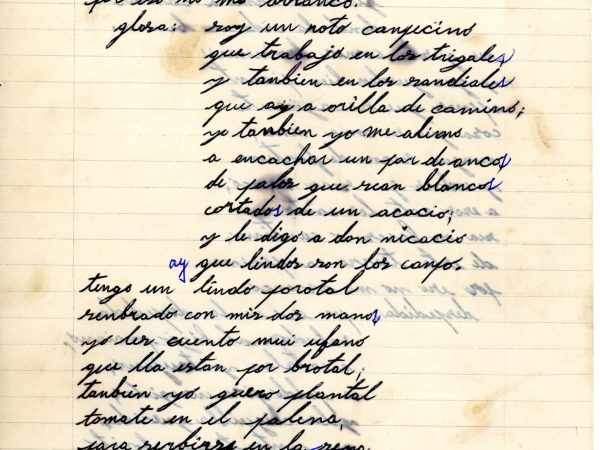 por eso no me arranco.
glosa: soy un roto canpecino
que trabajo en los trigales
y tanbien en los sandiales
que ay a orilla de camino;
yo tanbien yo me alieno
a encachar un par de ancos
de palos que sean blancos
cortados de un acacio;
y le digo a don nicacio
ay que lindos son los canpo.
tengo un lindo porotal
senbrado con mis dos manos
yo les cuento mui ufano
que lla estan por brotal;
tanbien yo quero plantal
tomate en el palena,
para serbirse en la sena